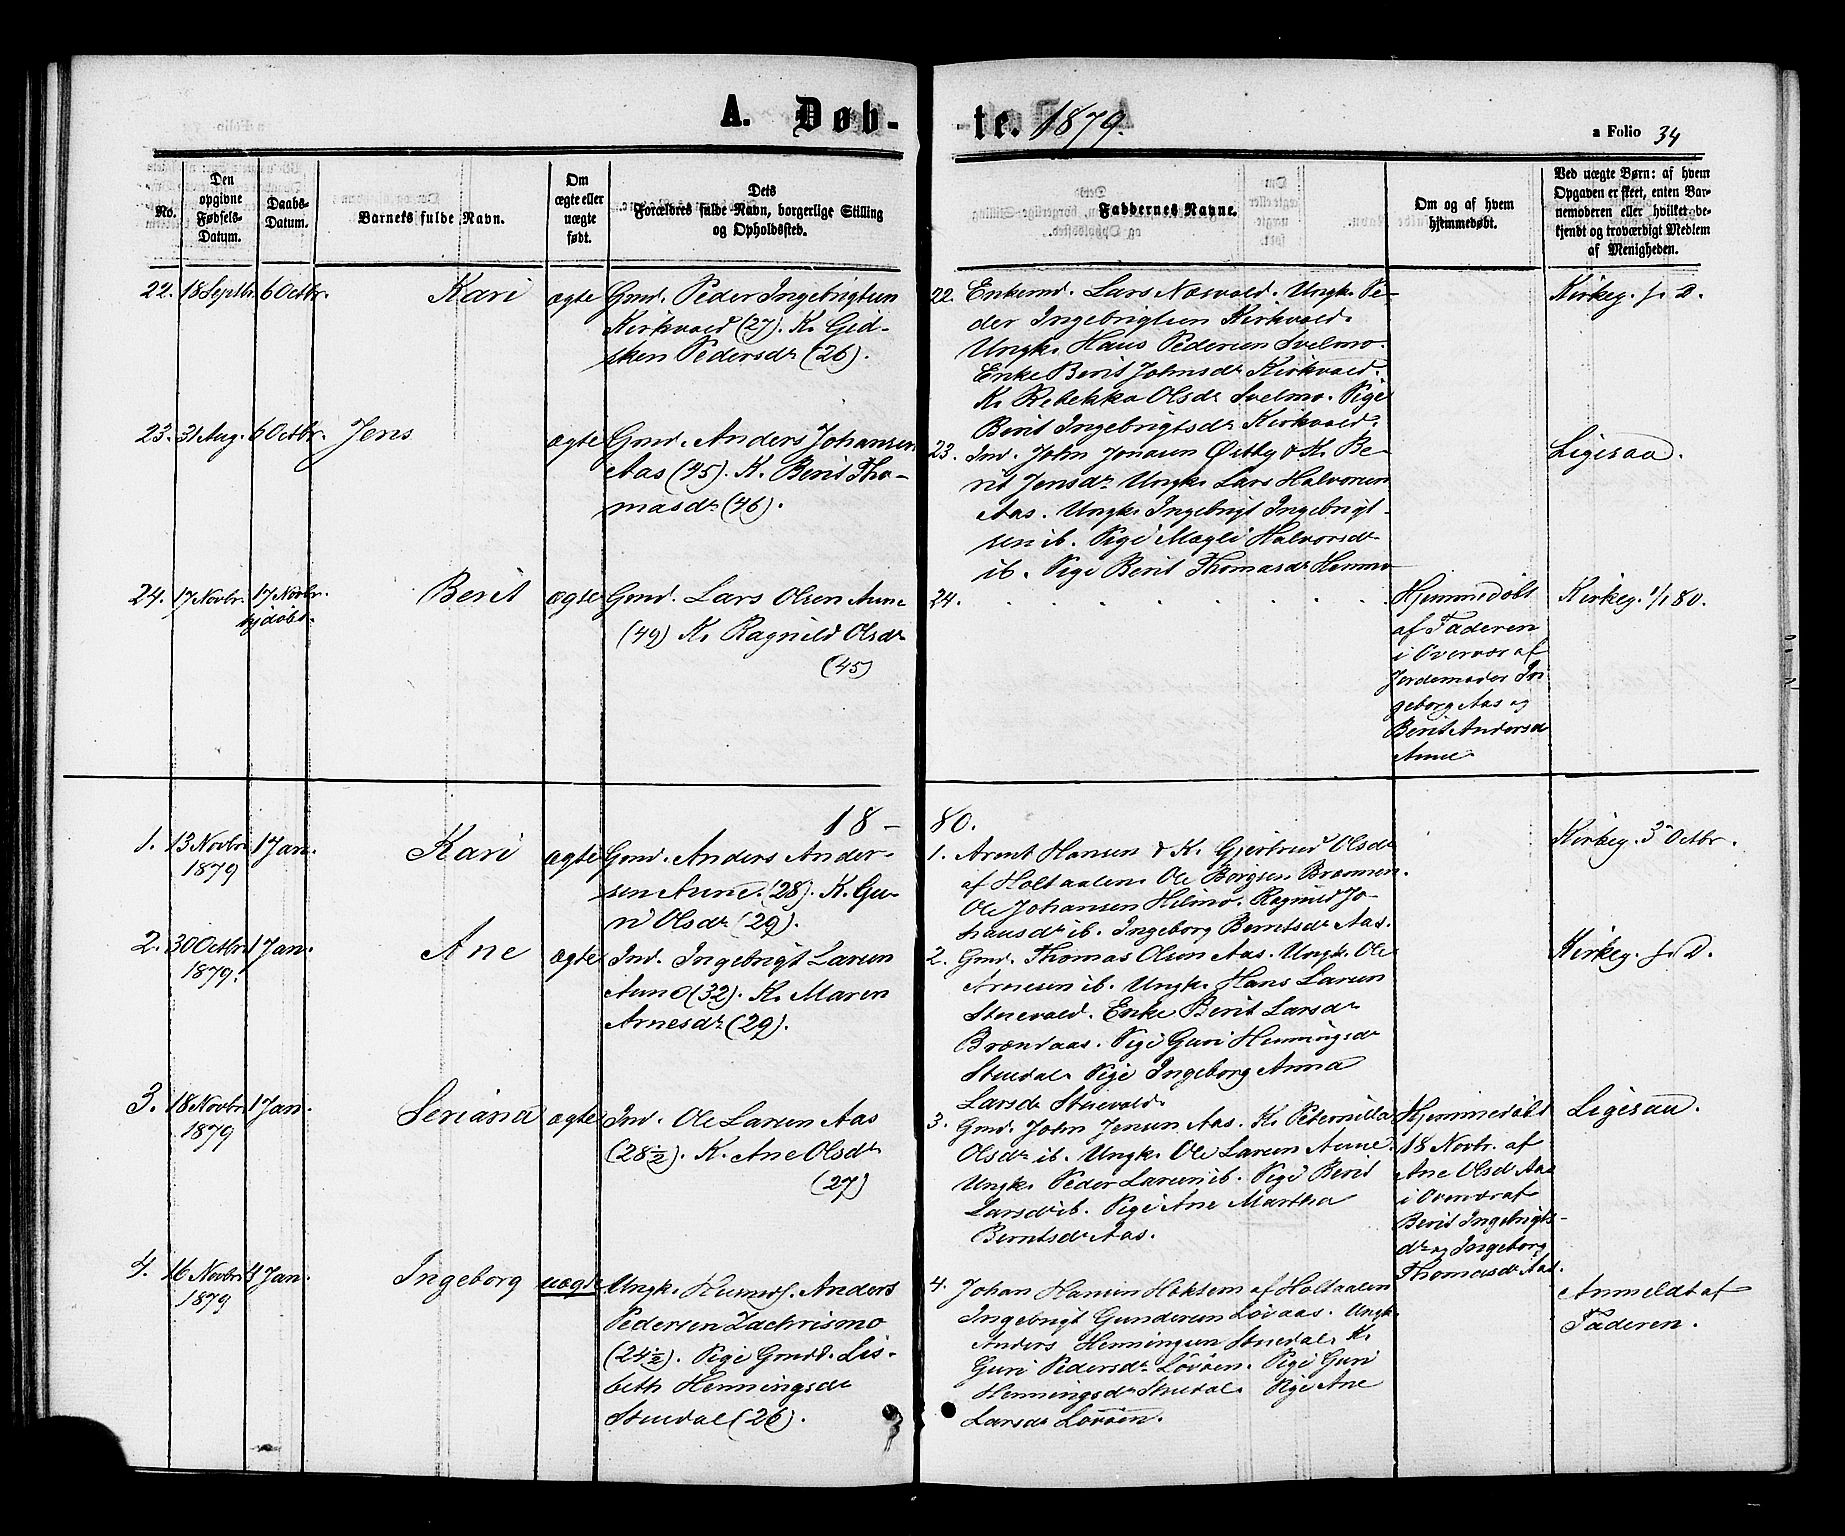 A. Døb-
te. 1879.
a Folio 34
No.
Den
opgivne
Fødsels-
Datum.
Daabs-
Datum.
Barnets fulde Navn.
Om
ægte eller
uægte
født.
Dets
Forældres fulde Navn, borgerlige Stilling
og Opholdssted.
Faddernes Navne.
Om og af hvem
hjemmedøbt.
Ved uægte Børn: af hvem
Opgaven er skeet, enten Bar-
nemoderen eller hvilket be-
kjendt og troværdigt Medlem
af Menigheden.
22. 18 Septbr. 6 Octbr. Kari ægte Gmd. Peder Ingebrigtsen
Kirkvold (27). K. Gid-
sken Pedersdr (26).
22. Enkemd. Lars Næsvold. Ungk. Pe-
der Ingebrigtsen Kirkvold.
Ungk. Hans Pedersen Svelmo.
Enke Berit Johnsdr Kirkvold.
K. Rebekka Olsdr Svelmo. Pige
Berit Ingebrigtsdr Kirkvold.
Kirkeg. s. D.
23. 31 Aug. 6 Octbr. Jens ægte Gmd. Anders Johansen
Aas (45). K. Berit Tho-
masdr (46).
23. Ind. John Jonasen Østby & K. Be-
rit Jensdr Ungk. Lars Halvorsen
Aas. Ungk. Ingebrigt Ingebrigt-
sen ib. Pige Magli Halvorsdr
ib. Pige Berit Thomasdr Hemmo
Ligesaa.
24. 17 Novbr. 17 Novbr.
hjdøbt.
Berit ægte Gmd. Lars Olsen Aune
(49) K. Ragnild Olsdr
(45)
24. . . . . . . . .
Hjemmedøbt
af Faderen
i Overvær af
Jordemoder In-
geborg Aas og
Berit Andersdr
Aune
Kirkeg. 1/1 80.
18-
80.
1. 13 Novbr.
1879
1 Jan. Kari ægte Gmd. Anders Ander-
sen Aune. (28). K. Gu-
ri Olsdr (29).
1. Arent Hansen & K. Gjertrud Olsdr
af Holtaalen. Ole Borgsen Brannen.
Ole Johansen Hilmo. Ragnild Jo-
hansdr ib. Ingeborg Berntsdr Aas.
Kirkeg. 3 Octbr.
2. 30 Octbr.
1879.
1 Jan. Ane ægte Ind. Ingebrigt Larsen
Aune (32). K. Maren
Arnesdr (29).
2. Gmd. Thomas Olsen Aas. Ungk. Ole
Arnesen ib. Ungk. Hans Larsen
Stuevold. Enke Berit Larsdr
Brændaas. Pige Guri Henningsdr
Stuedal. Pige Ingeborg Anna
Larsdr Stuevold.
Kirkeg. s. D.
3. 18 Novbr.
1879
1 Jan. Seriana ægte Ind. Ole Larsen Aas
(28½). K. Ane Olsdr
(27)
3. Gmd. John Jensen Aas. K. Peternilla
Olsdr ib. Ungk. Ole Larsen Aune.
Ungk. Peder Larsen ib. Pige Berit
Larsdr ib. Pige Ane Martha
Berntsdr Aas.
Hjemmedøbt
18 Novbr. af
Ane Olsdr Aas
i Overvær af
Berit Ingebrigts-
dr og Ingeborg
Thomasdr Aas.
Ligesaa.
4. 16 Novbr.
1879
4 Jan. Ingeborg uægte Ungk. Husmds. Anders
Pedersen Zachrismo
(24½). Pige Gmdd. Lis-
beth Henningsdr
Stuedal (26).
4. Johan Hansen Hoksem af Holtaalen
Ingebrigt Gundersen Løvaas. Ungk.
Anders Henningsen Stuedal. K.
Guri Pedersdr Løvøen. Pige Guri
Henningsdr Stuedal. Pige Ane
Larsdr Løvøen.
Anmeldt af
Faderen.